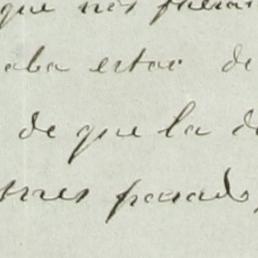 que nos
aba estar de
de que la
pasado,